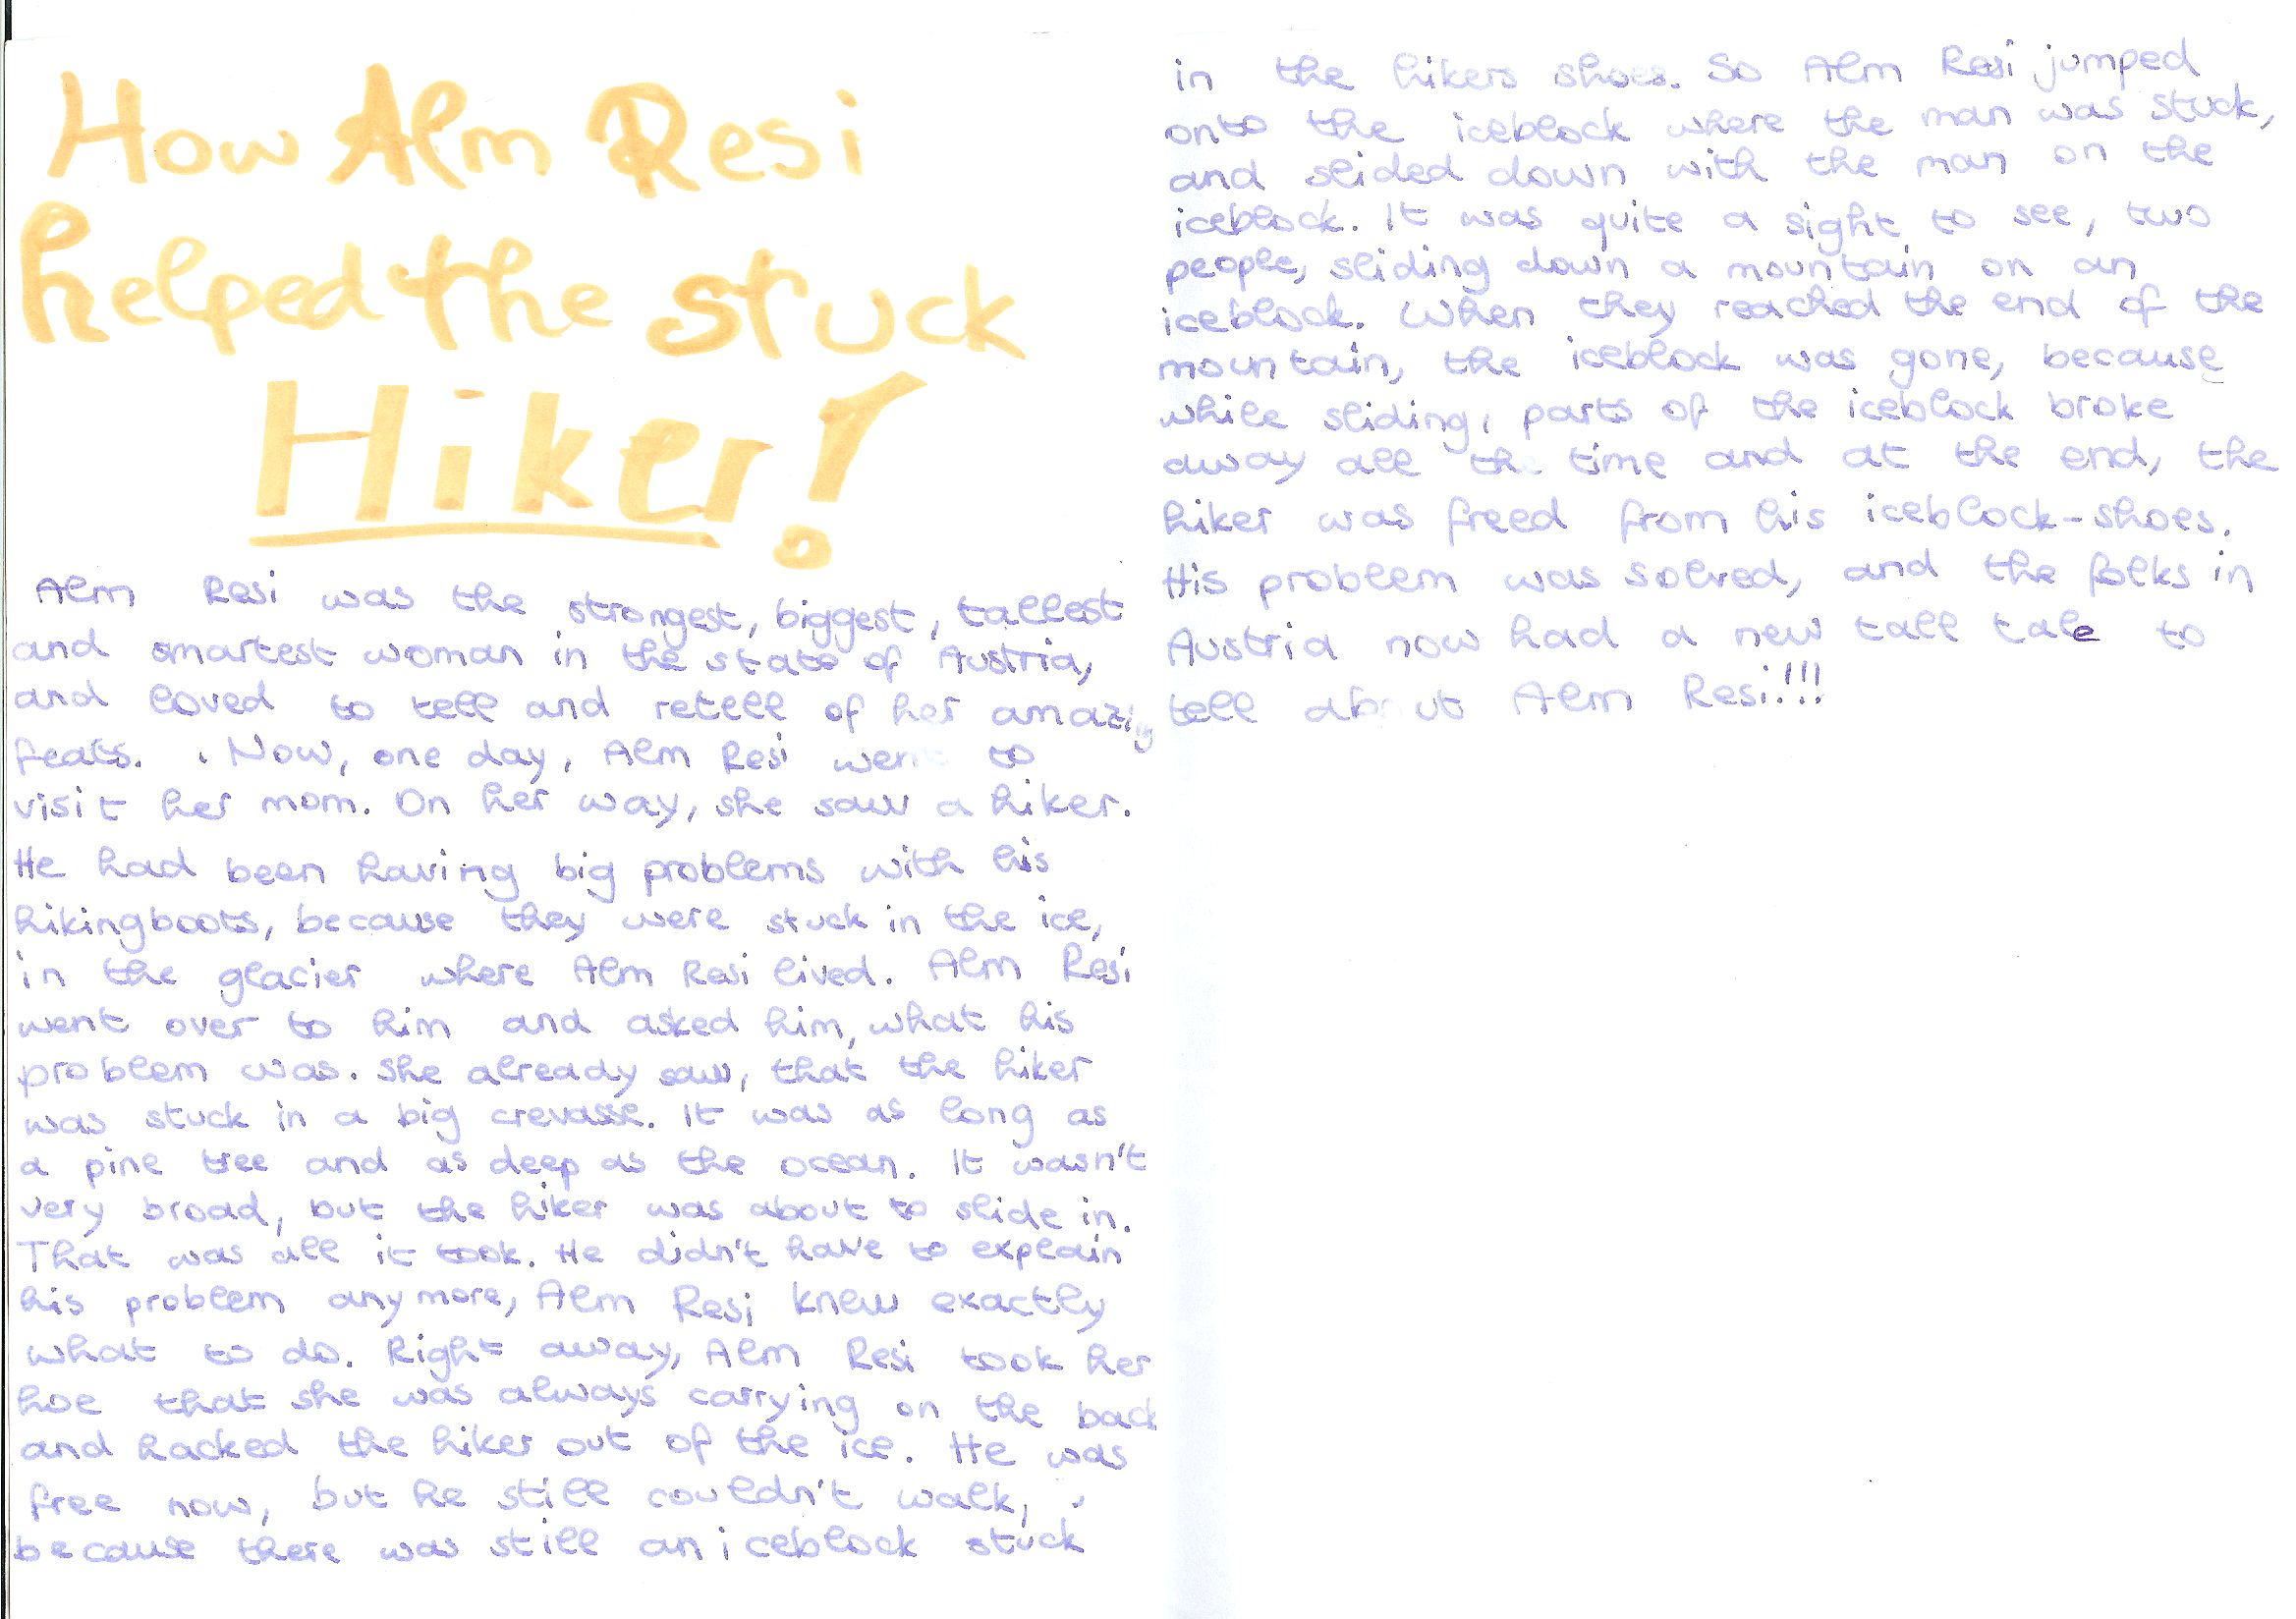 How Alm Resi
helped the stuck
Hiker!
Alm Resi was the strongest, biggest, tallest
and smartest woman in the state of Austria,
and loved to tell and retell of her amazing
feats. Now, one day, Alm Resi went to
visit her mom. On her way, she saw a hiker.
He had been having big problems with his
hikingboots, because they were stuck in the ice,
in the glacier where Alm Resi lived. Alm Resi
went over to him and asked him, what his
problem was. She already saw, that the hiker
was stuck in a big crevasse. It was as long as
a pine tree and as deep as the ocean. It wasn't
very broad, but the hiker was about to slide in.
That was all it took. He didn't have to explain
his problem anymore, Alm Resi knew exactly
what to do. Right away, Alm Resi took her
hoe that she was always carrying on the back
and hacked the hiker out of the ice. He was
free now, but he still couldn't walk,
because there was still an iceblock stuck
in the hikers shoes. So Alm Resi jumped
onto the iceblock where the man was stuck,
and slided down with the man on the
iceblock. It was quite a sight to see, two
people, sliding down a mountain on an
iceblock. When they reached the end of the
mountain, the iceblock was gone, because
while sliding, parts of the iceblock broke
away all the time and at the end, the
hiker was freed from his iceblock-shoes.
His problem was solved, and the folks in
Austria now had a new tall tale to
tell about Alm Resi!!!